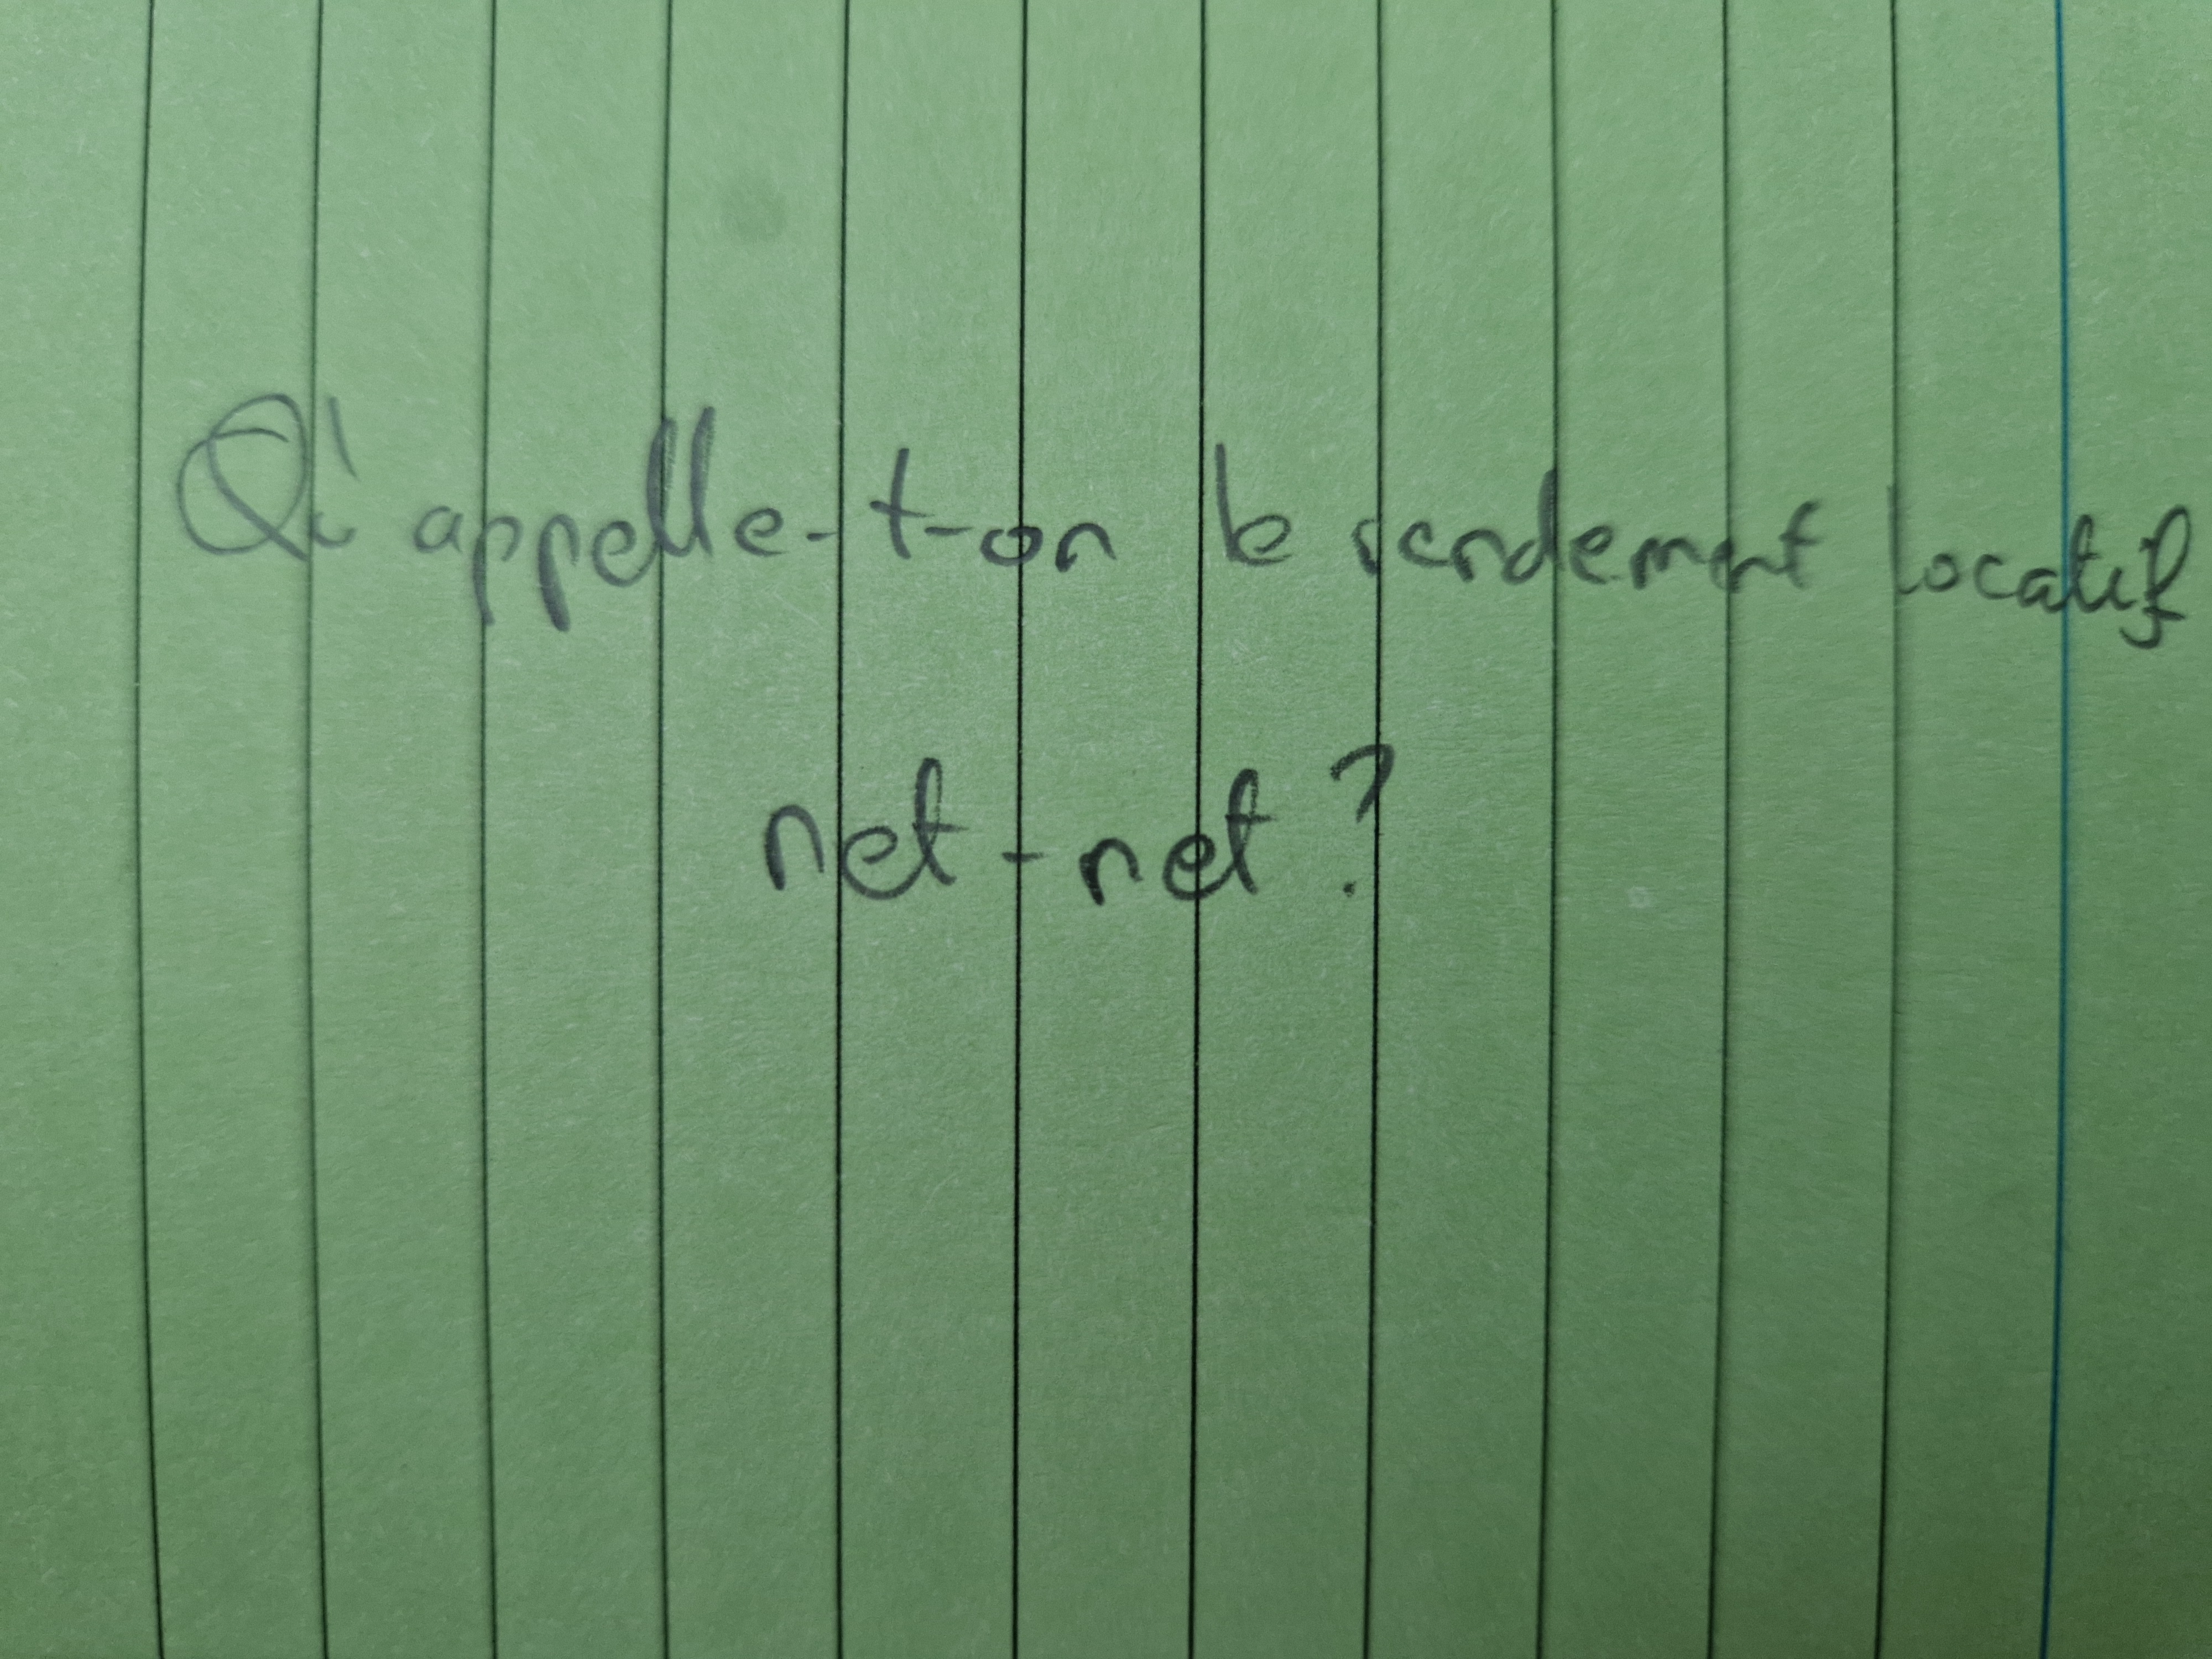 Qu'appelle-t-on le rendement locatif
net-net ?